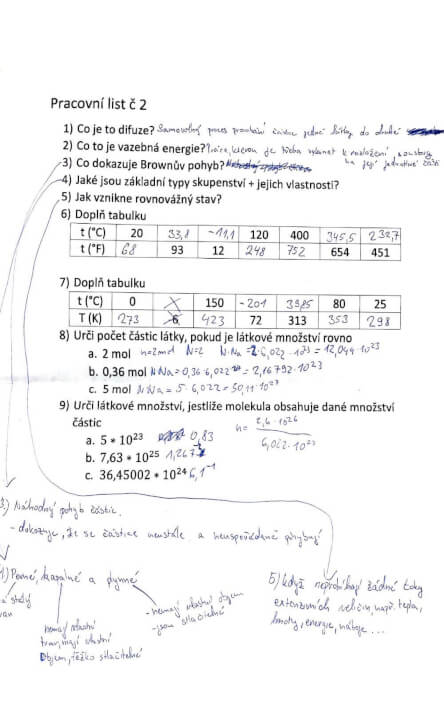 Pracovní list č 2
1) Co je to difuze? Samovolný proces pronikání částic jedné látky do druhé
2) Co to je vazebná energie? Práce, kterou je třeba vykonat k rozložení soustavy
na její jednotlivé části
3) Co dokazuje Brownův pohyb?
4) Jaké jsou základní typy skupenství + jejich vlastnosti?
5) Jak vznikne rovnovážný stav?
6) Doplň tabulku
t (°C) 20 33,8 -11,1 120 400 345,5 232,7
t (°F) 68 93 12 248 752 654 451
7) Doplň tabulku
t (°C) 0 150 -201 39,85 80 25
T (K) 273 6 423 72 313 353 298
8) Urči počet částic látky, pokud je látkové množství rovno
a. 2 mol n=2mol N=? N=n·Na = 2·6,022·10²³ = 12,044·10²³
b. 0,36 mol N=n·Na = 0,36·6,022 = 2,16792·10²³
c. 5 mol N=n·Na = 5·6,022 = 30,11·10²³
9) Urči látkové množství, jestliže molekula obsahuje dané množství
částic
a. 5 * 10²³ 0,83
b. 7,63 * 10²⁵
c. 36,45002 * 10²⁴
6,022·10²³
3) Náhodný pohyb částic
- dokazuje, že se částice neustále a neuspořádaně pohybují
4) Pevné, kapalné a plynné
stálý
nemají vlastní
tvar, mají vlastní
objem, těžko stlačitelné
- nemají vlastní objem
- jsou stlačitelné
5) když neprobíhají žádné toky
extenzivních veličin, např. tepla,
hmoty, energie, náboje ...